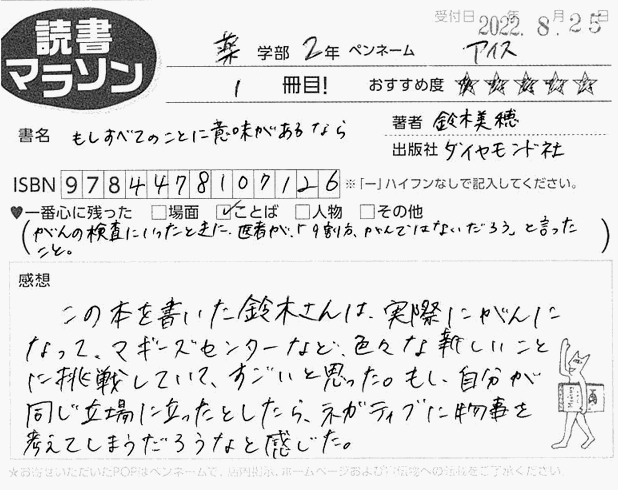 受付日 年 月 日
2022. 8. 25
読書
マラソン
薬 学部 2年 ペンネーム アイス
1 冊目! おすすめ度 ★★★★★
書名 もしすべてのことに意味があるなら
著者 鈴木美穂
出版社 ダイヤモンド社
ISBN 9784478107126 ※「ー」ハイフンなしで記入してください。
♥一番心に残った □場面 ☑ことば □人物 □その他
(がんの検査にいったときに、医者が、「9割方、がんではないだろう」と言った
こと。)
感想
この本を書いた鈴木さんは、実際にがんに
なって、マギーズセンターなど、色々な新しいこと
に挑戦していて、すごいと思った。もし、自分が
同じ立場に立ったとしたら、ネガティブに物事を
考えてしまうだろうなと感じた。
★お寄せいただいたPOPはペンネームで、店内掲示、ホームページおよび